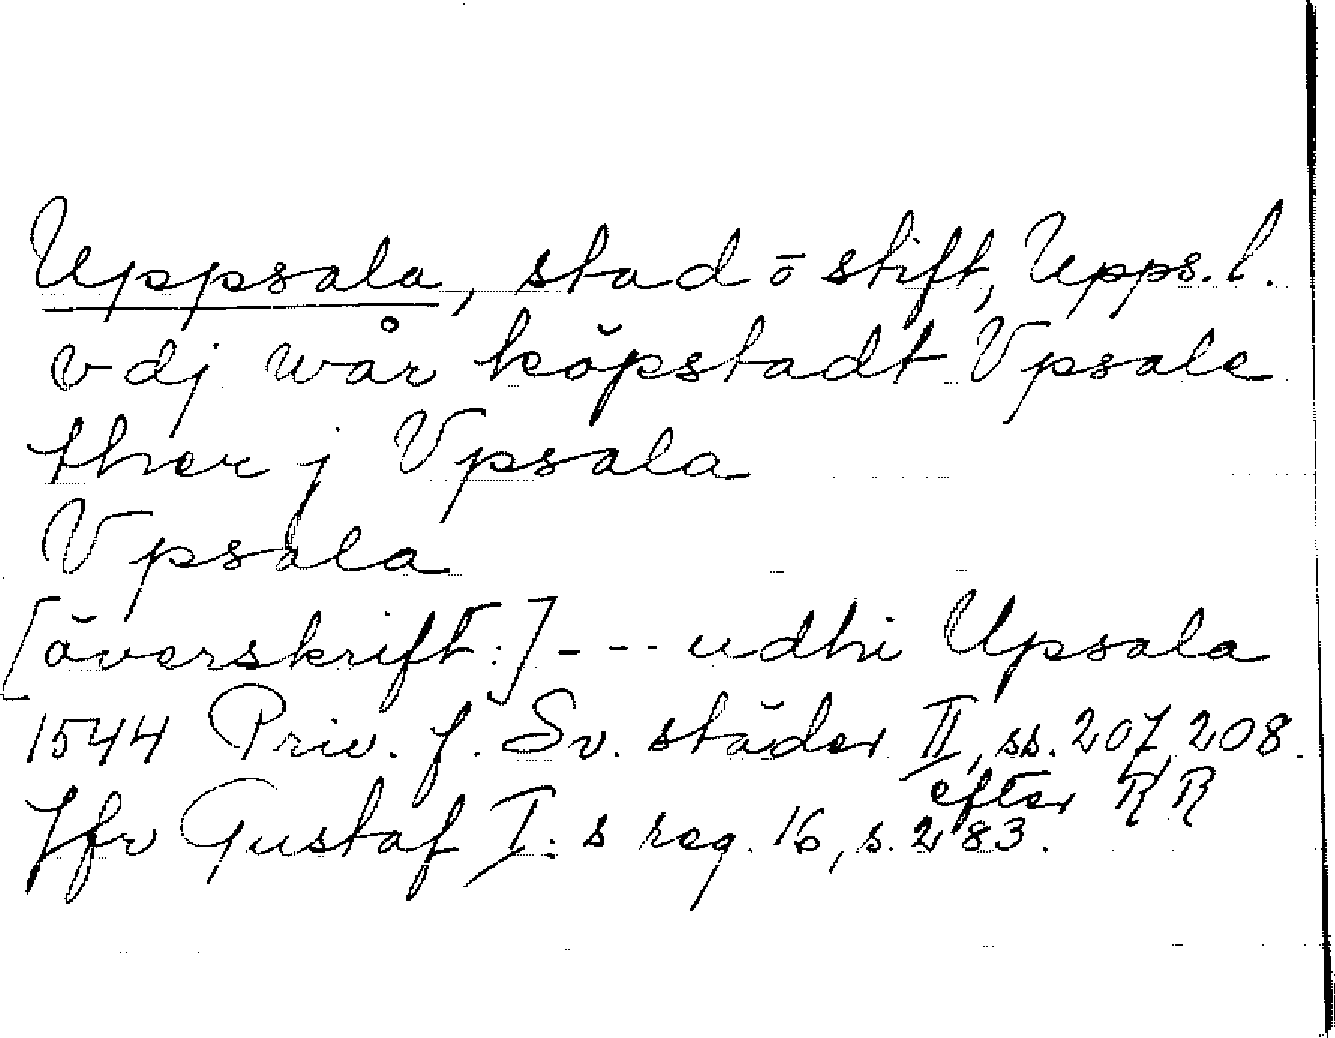 Uppsala, stad o stift, Upps. l.
vdj wår köpstadt Vpsale
ther j Vpsala
Vpsala
[överskrift:] --- udhi Upsala
1544 Priv. f. Sv. städer II, ss. 207, 208.
efter RR
Jfr Gustaf I:s reg. 16, s. 283.